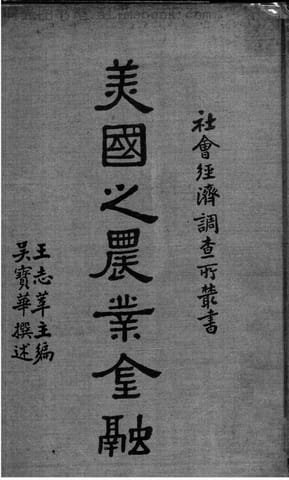 社會經濟調查所叢書
美國之農業金融
王志莘主編
吳寶華撰述